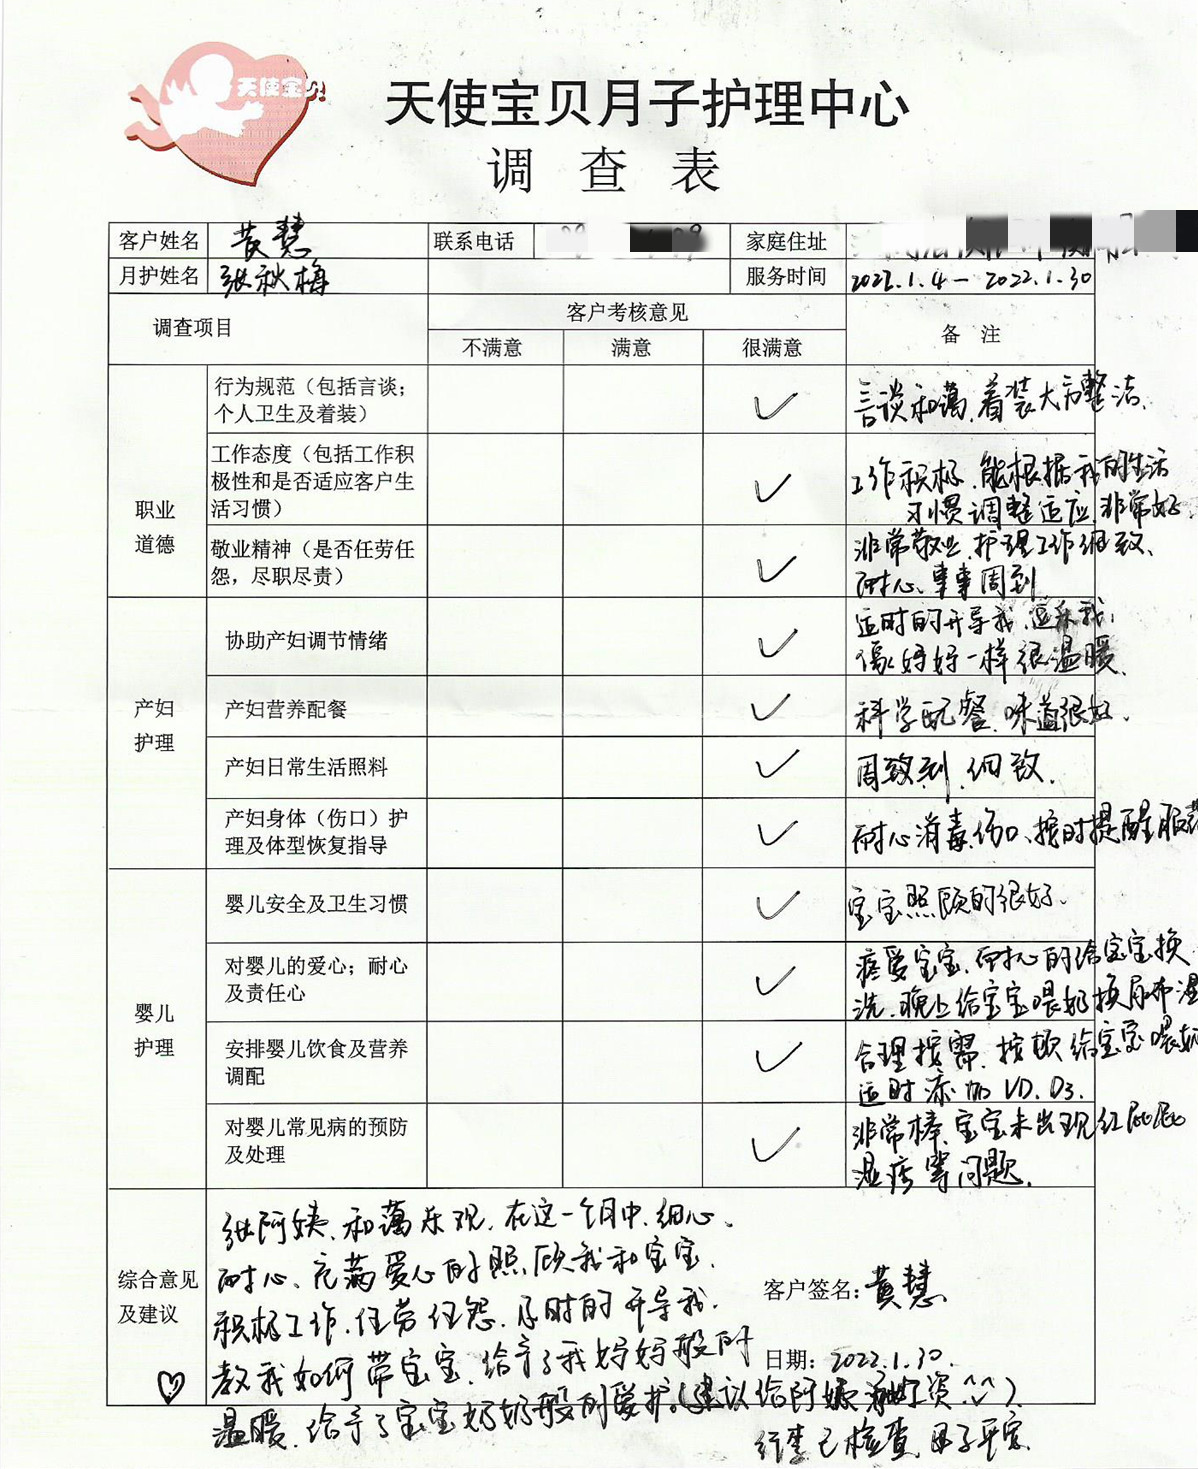 天使宝贝
天使宝贝月子护理中心
调 查 表
客户姓名 黄慧 联系电话 家庭住址
月护姓名 张秋梅 服务时间 2022.1.4 — 2022.1.30
调查项目 客户考核意见 备 注
不满意 满意 很满意
职业
道德
行为规范（包括言谈；
个人卫生及着装）
✓
言谈和蔼，着装大方整洁.
工作态度（包括工作积
极性和是否适应客户生
活习惯）
✓
工作积极，能根据我的生活
习惯调整适应，非常好.
敬业精神（是否任劳任
怨，尽职尽责）
✓
非常敬业，护理工作细致、
耐心、事事周到
产妇
护理
协助产妇调节情绪
✓
适时的开导我，逗乐我，
像妈妈一样很温暖.
产妇营养配餐
✓
科学配餐，味道很好.
产妇日常生活照料
✓
周致到，细致.
产妇身体（伤口）护
理及体型恢复指导
✓
耐心消毒伤口、按时提醒服药
婴儿
护理
婴儿安全及卫生习惯
✓
宝宝照顾的很好.
对婴儿的爱心；耐心
及责任心
✓
疼爱宝宝，耐心的给宝宝换
洗，晚上给宝宝喂奶换尿布湿
安排婴儿饮食及营养
调配
✓
合理按需，按顿给宝宝喂奶
适时添加VD.D3.
对婴儿常见病的预防
及处理
✓
非常棒，宝宝未出现红屁屁
湿疹等问题.
综合意见
及建议
♡
张阿姨，和蔼乐观，在这一个月中，细心、
耐心、充满爱心的照顾我和宝宝.
积极工作，任劳任怨，及时的开导我.
教我如何带宝宝，给予了我妈妈般的
温暖，给予了宝宝奶奶般的爱护。（建议给阿姨涨工资^^）
客户签名：黄慧
日期：2022.1.30.
行李已检查，母子平安.